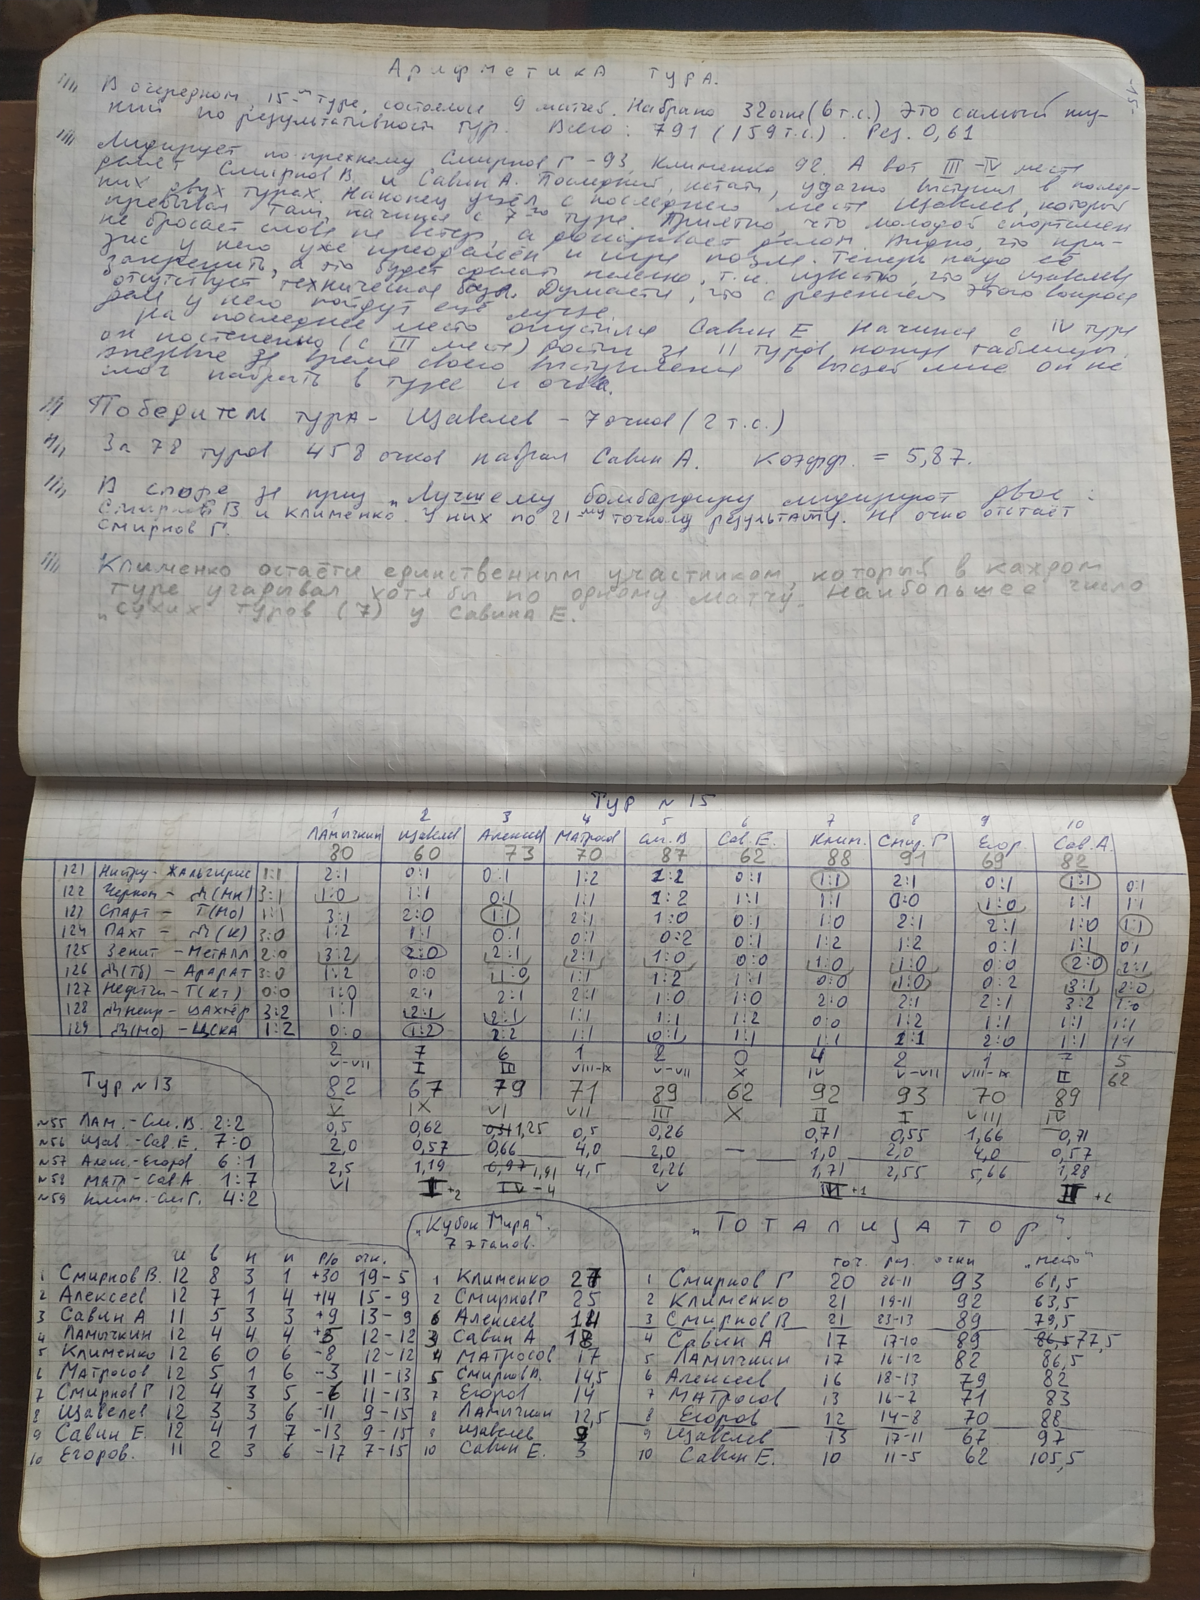 Арифметика тура.
В очередном, 15-м туре, состоялось 9 матчей. Набрано 32 очка (6 т.с.) Это самый
ний по результативности тур. Всего: 791 (159 т.с.). Рез. 0,61
-15-
Лидирует по прежнему Смирнов Г - 93, Клименко 92. А вот III-IV место
делят Смирнов В. и Савин А. Последний, кстати, удачно выступил в послед-
них двух турах. Наконец ушёл с последнего места Щавелев, который
пребывал там, начиная с 7го тура. Приятно, что молодой спортсмен
не бросает слова на ветер, а доказывает делом. Видно, что кри-
зис у него уже преодолён и игра пошла. Теперь надо её
закрепить, а это будет сделать нелегко, т.к. известно, что у Щавелева
отсутствует техническая база. Думается, что с решением этого вопроса
дела у него пойдут ещё лучше.
На последнее место опустился Савин Е. Начиная с IV тура
он постепенно (с III места) достиг за 11 туров конца таблицы.
Впервые за время своего выступления в высшей лиге он не
смог набрать в туре и очка.
Победитель тура - Щавелев - 7 очков (2 т.с.)
За 78 туров 458 очков набрал Савин А. Коэфф. = 5,87.
В споре за приз "Лучшему бомбардиру" лидируют двое:
Смирнов В и Клименко. У них по 21-му точному результату. На очко отстаёт
Смирнов Г.
Клименко остаётся единственным участником, который в каждом
туре угадывал хотя бы по одному матчу. Наибольшее число
"сухих" туров (7) у Савина Е.
Тур №15
1 2 3 4 5 6 7 8 9 10
Ламычкин Щавелев Алексеев Матросов См.В Сав.Е. Клим. Смир.Г Егор. Сав.А.
80 60 73 70 87 62 88 91 69 82
121 Нистру - Жальгирис 1:1 2:1 0:1 0:1 1:2 1:2 0:1 1:1 2:1 0:1 1:1 0:1
122 Черном - Д(Мн) 3:1 1:0 1:1 0:1 1:1 1:2 1:1 1:1 0:0 1:0 1:1 1:1
123 Спарт - Т(Мо) 1:1 3:1 2:0 1:1 2:1 1:0 0:1 1:0 2:1 2:1 1:0 1:1
124 Пахт - Д(К) 3:0 1:2 1:1 0:1 0:1 0:2 0:1 1:2 1:2 0:1 1:1 0:1
125 Зенит - Металл 2:0 3:2 2:0 2:1 2:1 1:0 0:0 1:0 1:0 0:0 2:0 2:1
126 Д(Тб) - Арарат 3:0 1:2 0:0 1:0 1:1 1:2 1:1 0:0 1:0 0:2 3:1 2:0
127 Нефтчи - Т(Кт) 0:0 1:0 2:1 2:1 2:1 1:0 1:0 2:0 2:1 2:1 3:2 1:0
128 Днепр - Шахтёр 3:2 1:1 2:1 2:1 1:1 1:1 1:2 0:0 1:2 1:1 1:1 1:1
129 Д(Мо) - ЦСКА 1:2 0:0 1:2 2:2 1:1 0:1 1:1 1:1 1:1 2:0 1:1 1:1
2 7 6 1 2 0 4 2 1 7 5
V-VII I III VIII-IX V-VII X IV V-VII VIII-IX II 62
82 67 79 71 89 62 92 93 70 89
V IX VI VII III X II I VIII IV
0,5 0,62 1,25 0,5 0,26 0,71 0,55 1,66 0,71
2,0 0,57 0,66 4,0 2,0 — 1,0 2,0 4,0 0,57
2,5 1,19 1,91 4,5 2,26 1,71 2,55 5,66 1,28
Тур №13
№55 Лам. - См.В. 2:2
№56 Щав. - Сав.Е. 7:0
№57 Алек. - Егоров 6:1
№58 Матр. - Сав.А. 1:7
№59 Клим. - См.Г. 4:2
и в н п р/о очк.
1 Смирнов В. 12 8 3 1 +30 19-5
2 Алексеев 12 7 1 4 +14 15-9
3 Савин А 11 5 3 3 +9 13-9
4 Ламычкин 12 4 4 4 +5 12-12
5 Клименко 12 6 0 6 -8 12-12
6 Матросов 12 5 1 6 -3 11-13
7 Смирнов Г 12 4 3 5 -6 11-13
8 Щавелев 12 3 3 6 -11 9-15
9 Савин Е. 12 4 1 7 -13 9-15
10 Егоров. 11 2 3 6 -17 7-15
"Кубок Мира".
7 этапов.
1 Клименко 27
2 Смирнов Г 25
6 Алексеев 14
3 Савин А 18
4 Матросов 17
5 Смирнов В. 14,5
7 Егоров 14
8 Ламычкин 12,5
9 Щавелев 9
10 Савин Е. 3
"Тотализатор"
точ. раз. очки "место"
1 Смирнов Г 20 26-11 93 61,5
2 Клименко 21 19-11 92 63,5
3 Смирнов В 21 23-13 89 79,5
4 Савин А 17 17-10 89 77,5
5 Ламычкин 17 16-12 82 86,5
6 Алексеев 16 18-13 79 82
7 Матросов 13 16-7 71 83
8 Егоров 12 14-8 70 88
9 Щавелев 13 17-11 67 97
10 Савин Е. 10 11-5 62 105,5